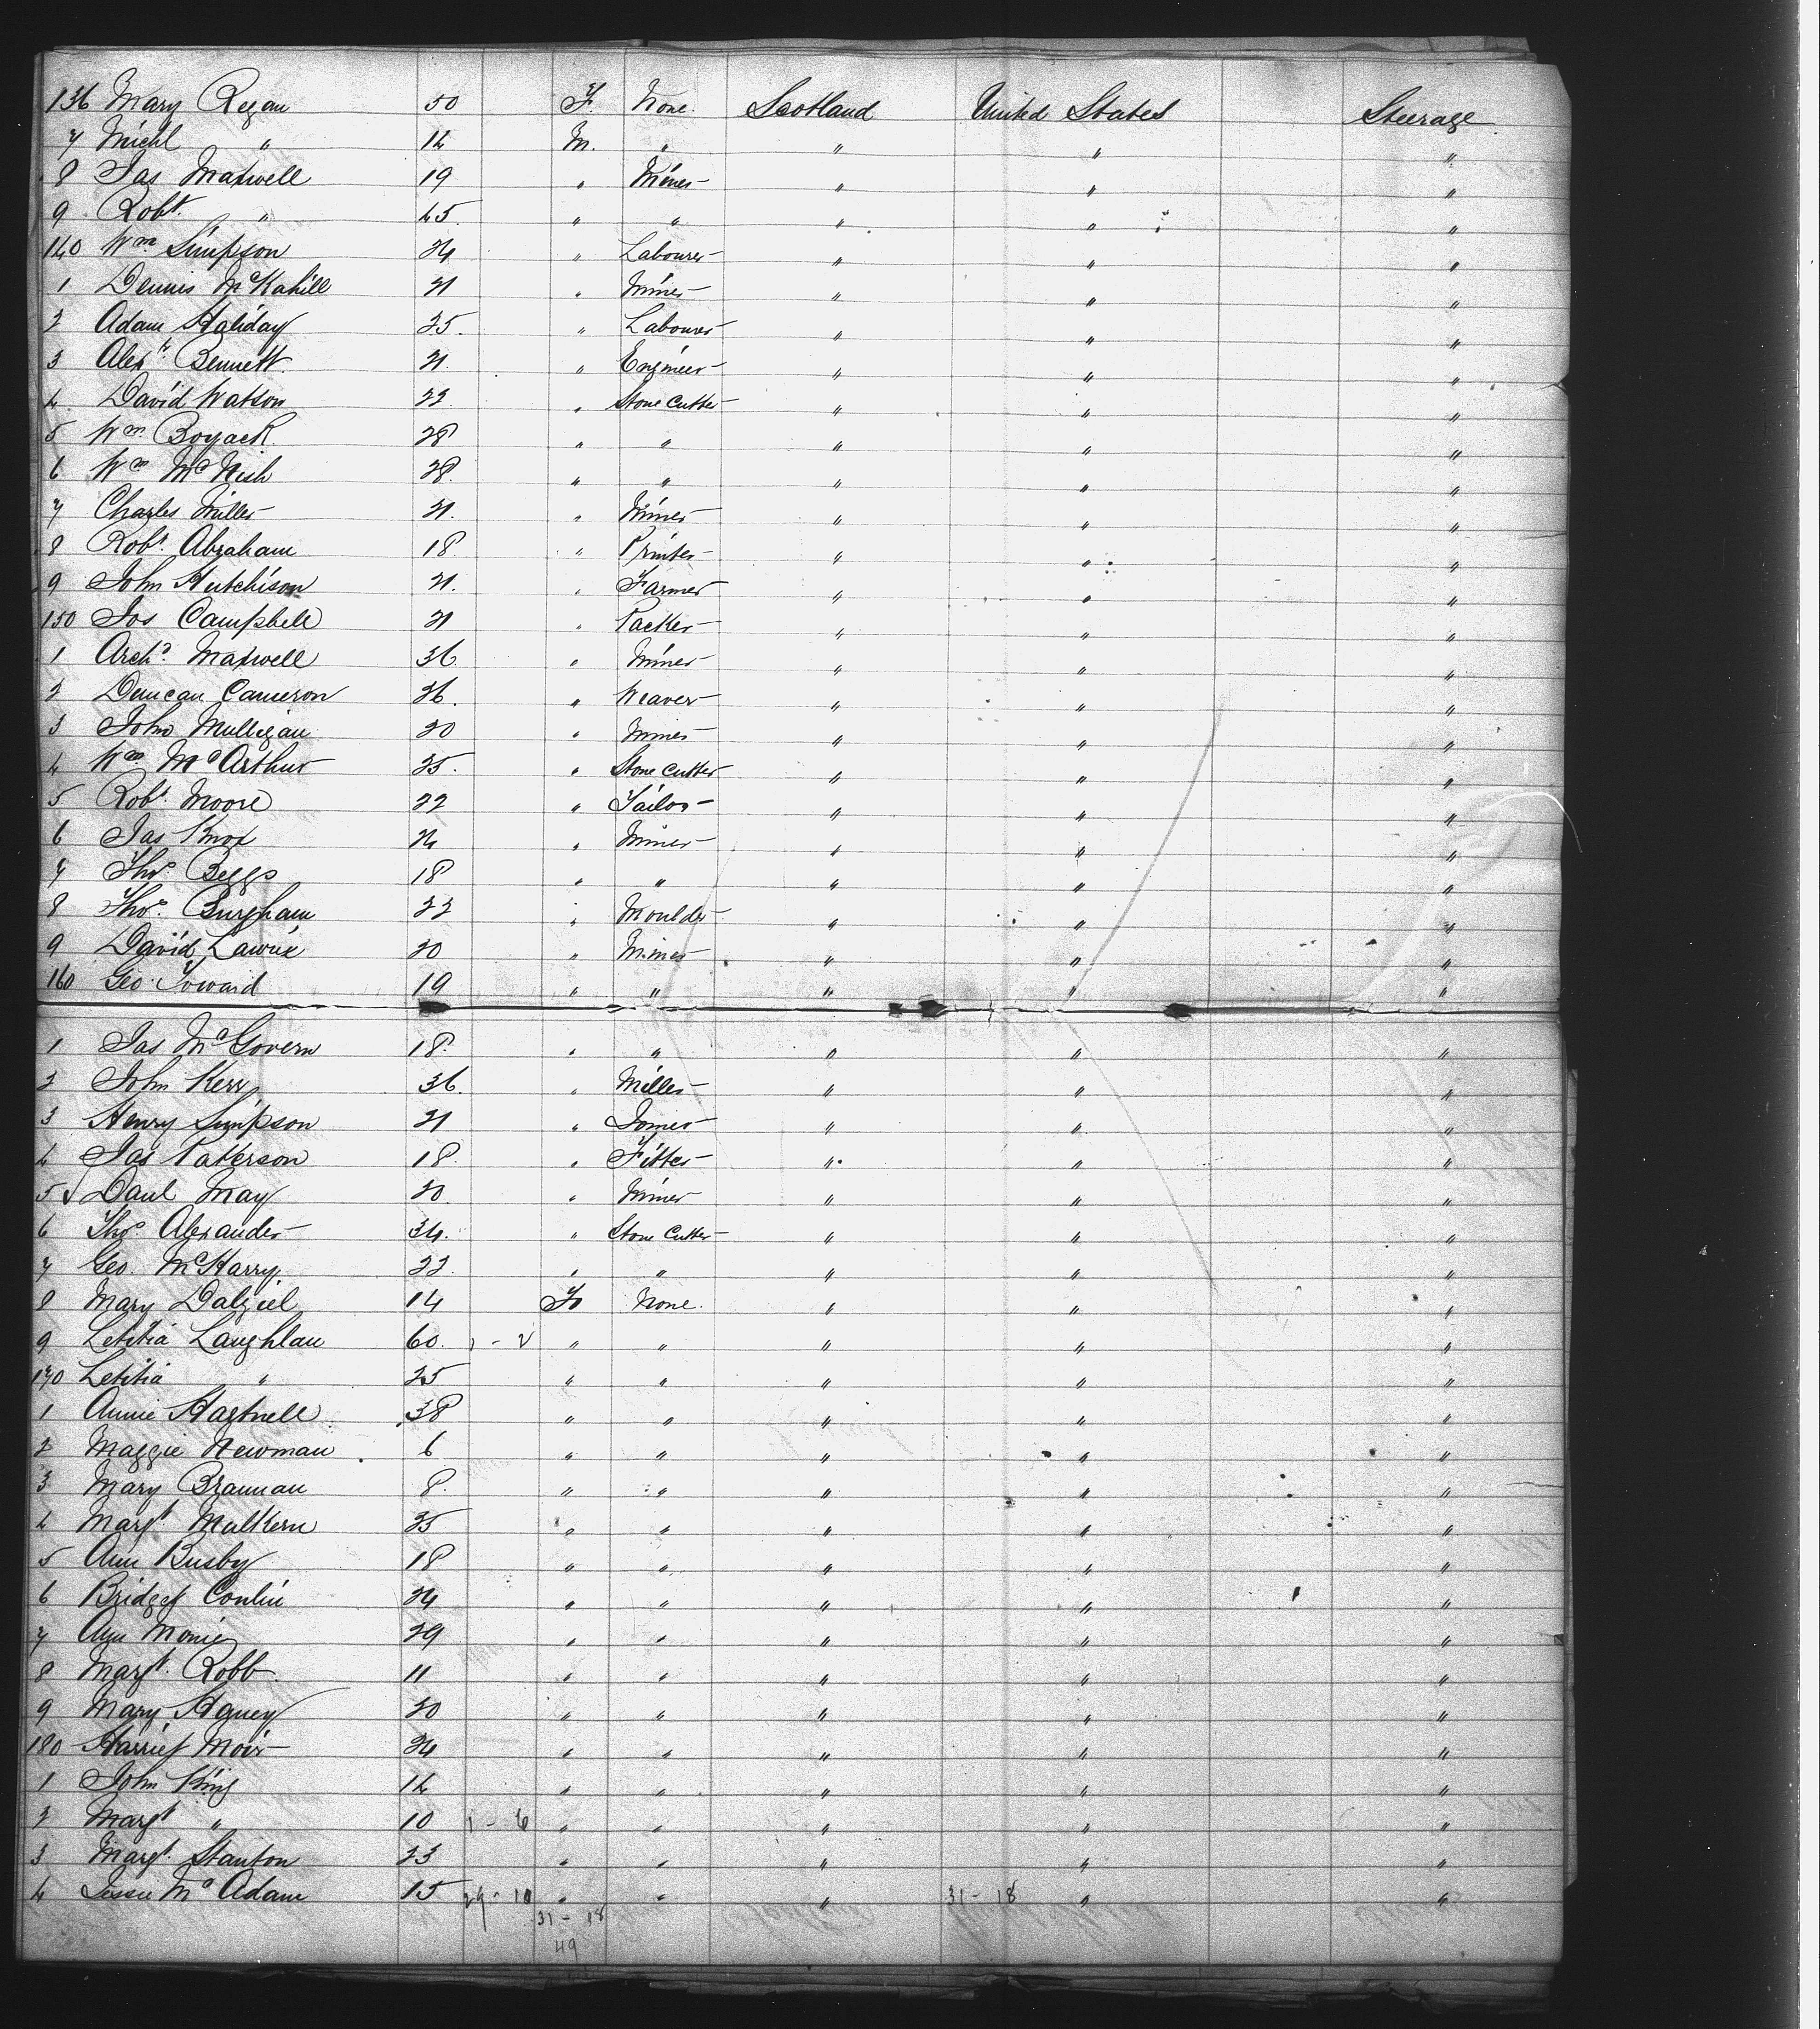 136 Mary Regan 50 F. None. Scotland United States Steerage
7 Michl " 14 M. " " " "
8 Jas Maxwell 19 " Miner " " "
9 Robt. " 45 " " " " "
140 Wm Simpson 24 " Labourer " " "
1 Dennis McKahill 21 " Miner " " "
2 Adam Haliday 25. " Labourer " " "
3 Alexr. Bennett. 21. " Engineer " " "
4. David Watson 22. " Stone Cutter " " "
5 Wm Boyack 28 " " " " "
6 Wm McNish 28. " " " " "
7 Charles Miller 21. " Miner " " "
8 Robt. Abraham 18 " Printer " " "
9 John Hutchison 21. " Farmer " " "
150 Jos Campbell 21 " Packer " " "
1 Archd. Maxwell 36. " Miner " " "
2 Duncan Cameron 26. " Weaver " " "
3 John Mulligan 20 " Miner " " "
4 Wm McArthur 25. " Stone Cutter " " "
5 Robt. Moore 22 " Tailor " " "
6 Jas Knox 24 " Miner " " "
7 Thos Beggs 18 " " " " "
8 Thos. Burgham 22 " Moulder " " "
9 David Lawrie 20 " Miner " " "
160 Geo. Toward 19 " " " " "
1 Jas McGovern 18. " " " " "
2 John Kerr 36. " Miller " " "
3 Henry Simpson 21 " Joiner " " "
4 Jas Paterson 18. " Fitter " " "
5 Danl May 20. " Miner " " "
6 Thos. Alexander 34. " Stone Cutter " " "
7 Geo. McHarry 22. " " " " "
8 Mary Dalziel 14 F None. " " "
9 Letitia Laughlan 60. 1 - 2 " " " " "
170 Letitia " 25 " " " " "
1 Annie Hartnell 38 " " " " "
2 Maggie Newman 6 " " " " "
3 Mary Brannan 8. " " " " "
4 Margt. Mulkern 35 " " " " "
5 Ann Busby 18 " " " " "
6 Bridget Conlin 24 " " " " "
7 Ann Monie 29 " " " " "
8 Margt. Robb. 11 " " " " "
9 Mary Agney 20 " " " " "
180 Harriet Moir 24 " " " " "
1 John King 14 " " " " "
2 Margt " 10 1 - 6 " " " " "
3 Margt. Stanton 23 " " " " "
4 Jessie McAdam 15 29 - 10 " " " 31 - 18 " "
31 - 18
49